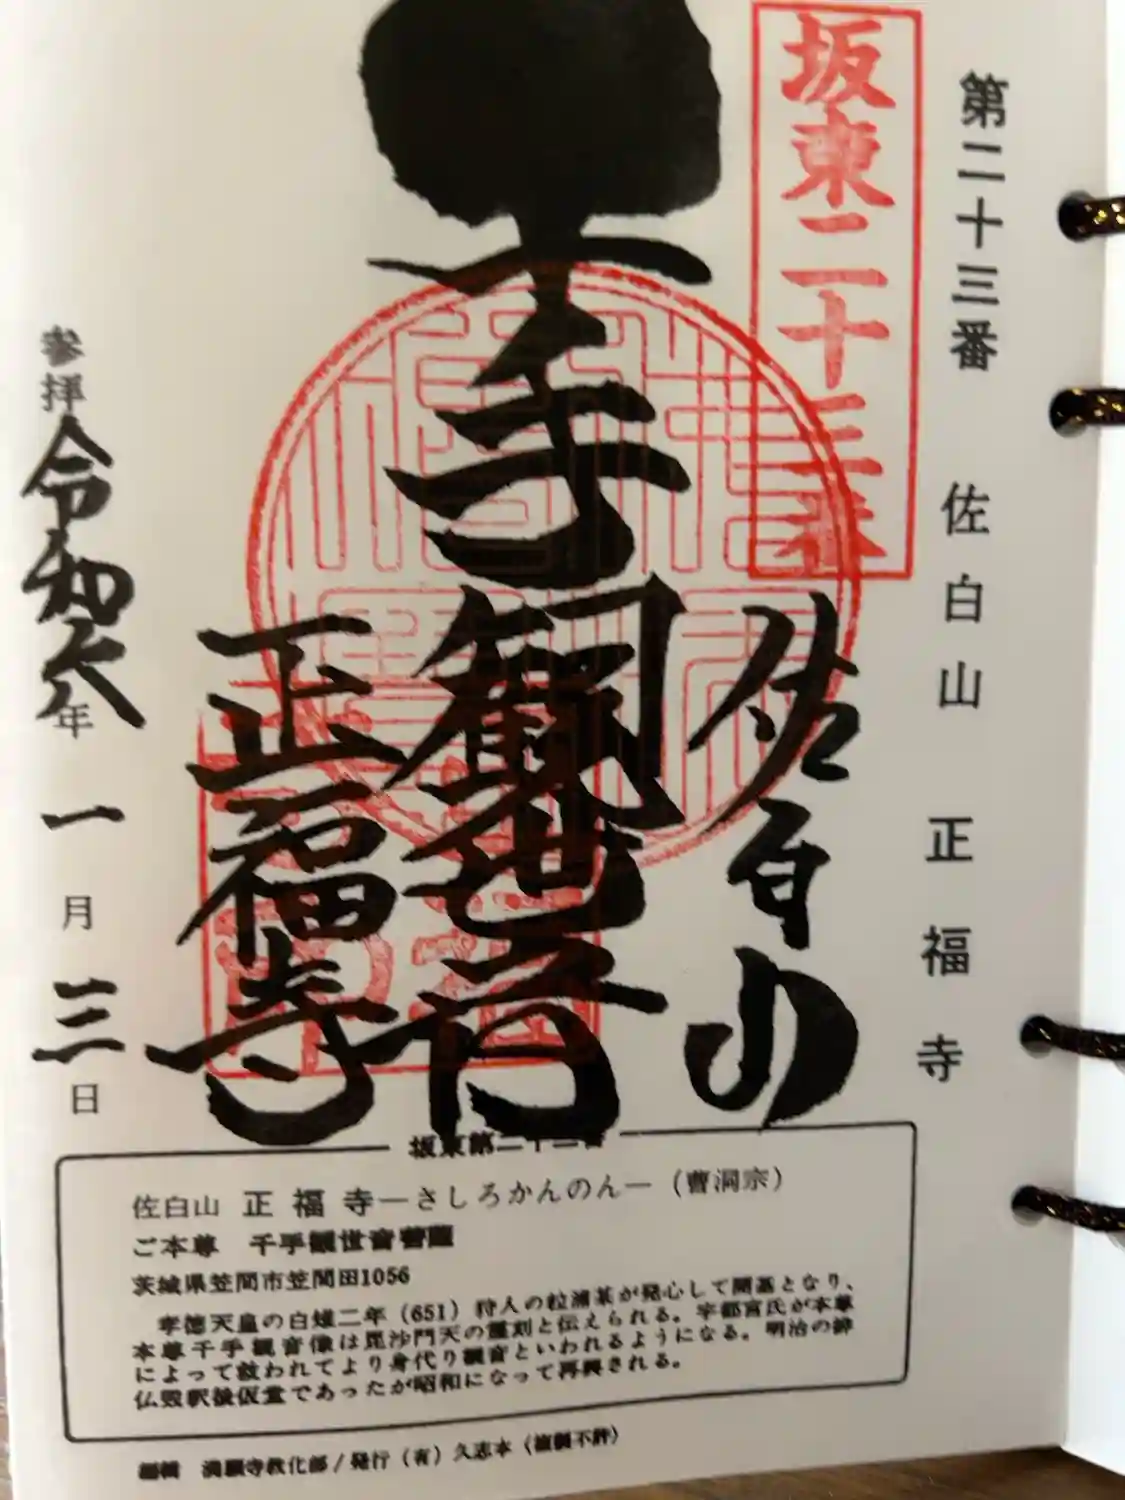 第二十三番 佐白山 正福寺
坂東二十三番
佐白山
千手観世音
正福寺
参拝 令和六年 一月 三日
坂東第二十三番
佐白山 正福寺―さしろかんのん―(曹洞宗)
ご本尊 千手観世音菩薩
茨城県笠間市笠間田1056
孝徳天皇の白雉二年(651)狩人の粒浦某が発心して開基となり、
本尊千手観音像は毘沙門天の霊刻と伝えられる。宇都宮氏が本尊
によって救われてより身代り観音といわれるようになる。明治の排
仏毀釈後仮堂であったが昭和になって再興される。
編輯 満願寺教化部/発行(有)久志本(複製不許)